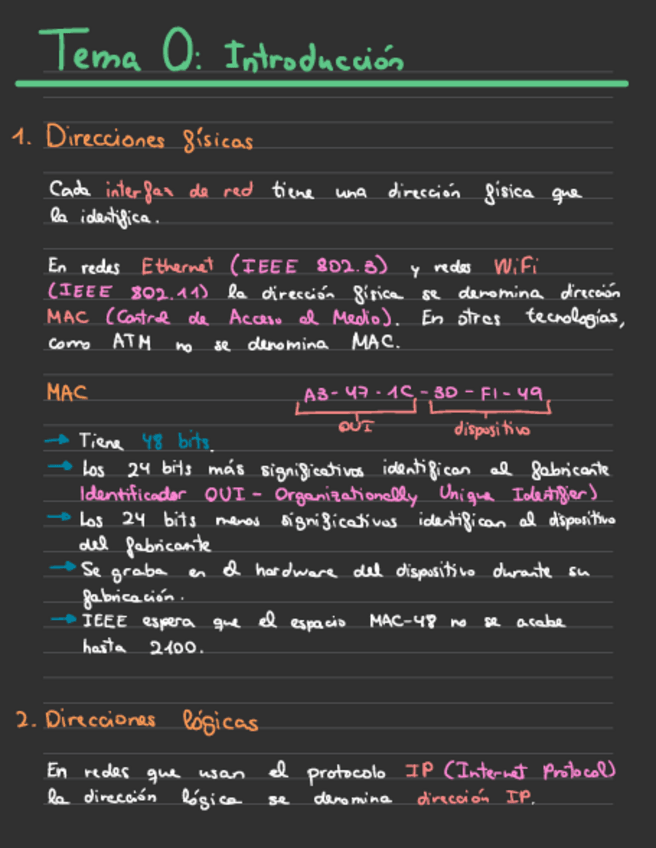 Tema 0: Introducción
1. Direcciones físicas
Cada interfaz de red tiene una dirección física que
la identifica.
En redes Ethernet (IEEE 802.3) y redes WiFi
(IEEE 802.11) la dirección física se denomina dirección
MAC (Control de Acceso al Medio). En otras tecnologías,
como ATM no se denomina MAC.
MAC
A3-47-1C-3D-F1-49
OUI dispositivo
→ Tiene 48 bits.
→ Los 24 bits más significativos identifican al fabricante
Identificador OUI - Organizationally Unique Identifier)
→ Los 24 bits menos significativos identifican al dispositivo
del fabricante
→ Se graba en el hardware del dispositivo durante su
fabricación.
→ IEEE espera que el espacio MAC-48 no se acabe
hasta 2100.
2. Direcciones lógicas
En redes que usan el protocolo IP (Internet Protocol)
la dirección lógica se denomina dirección IP.